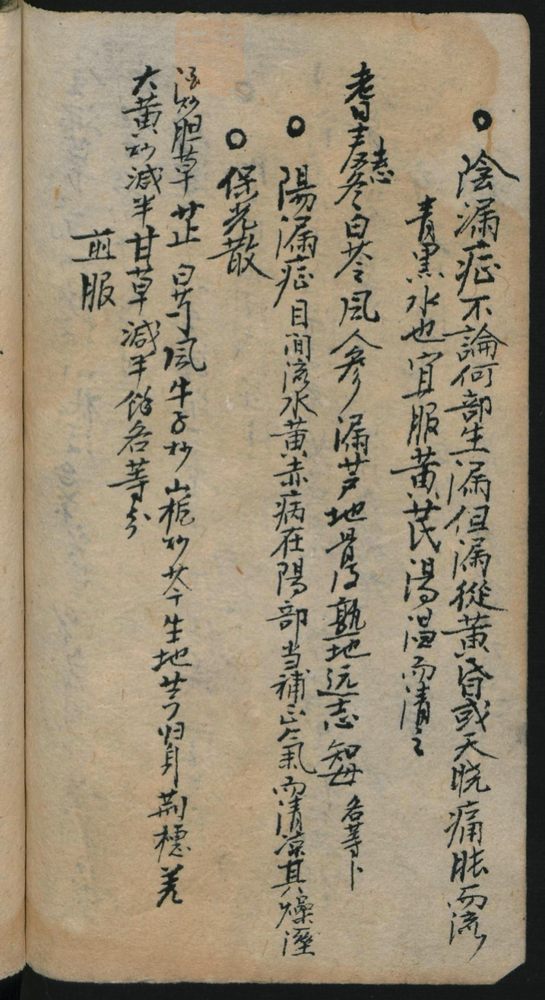 ○陰漏症不論何部生漏但漏從黃昏或天晚痛脹而流
青黑水也宜服黃芪湯温而清之
耆 冬白苓風人參漏芦地骨皮熟地远志知母各等卜
○陽漏症目间流水黄赤病在陽部当補正氣而清凉其燥溼
○保光散
酒炒胆草 芷 白芍風牛子炒山栀炒芩生地芎归身荊穗羌
大黄炒減半甘草減半餘各等分
煎服